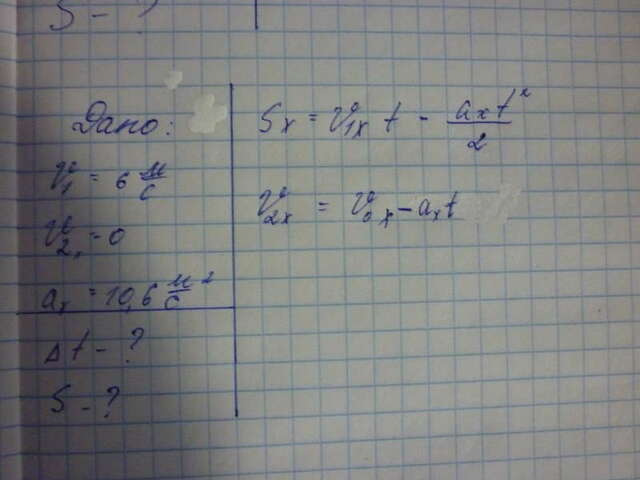 S - ?
Дано:
V₁ = 6 м/с
V₂ₓ = 0
aₓ = 10,6 м/с²
Δt - ?
S - ?
Sₓ = V₁ₓ t - aₓt²/2
V₂ₓ = V₀ₓ - aₓt